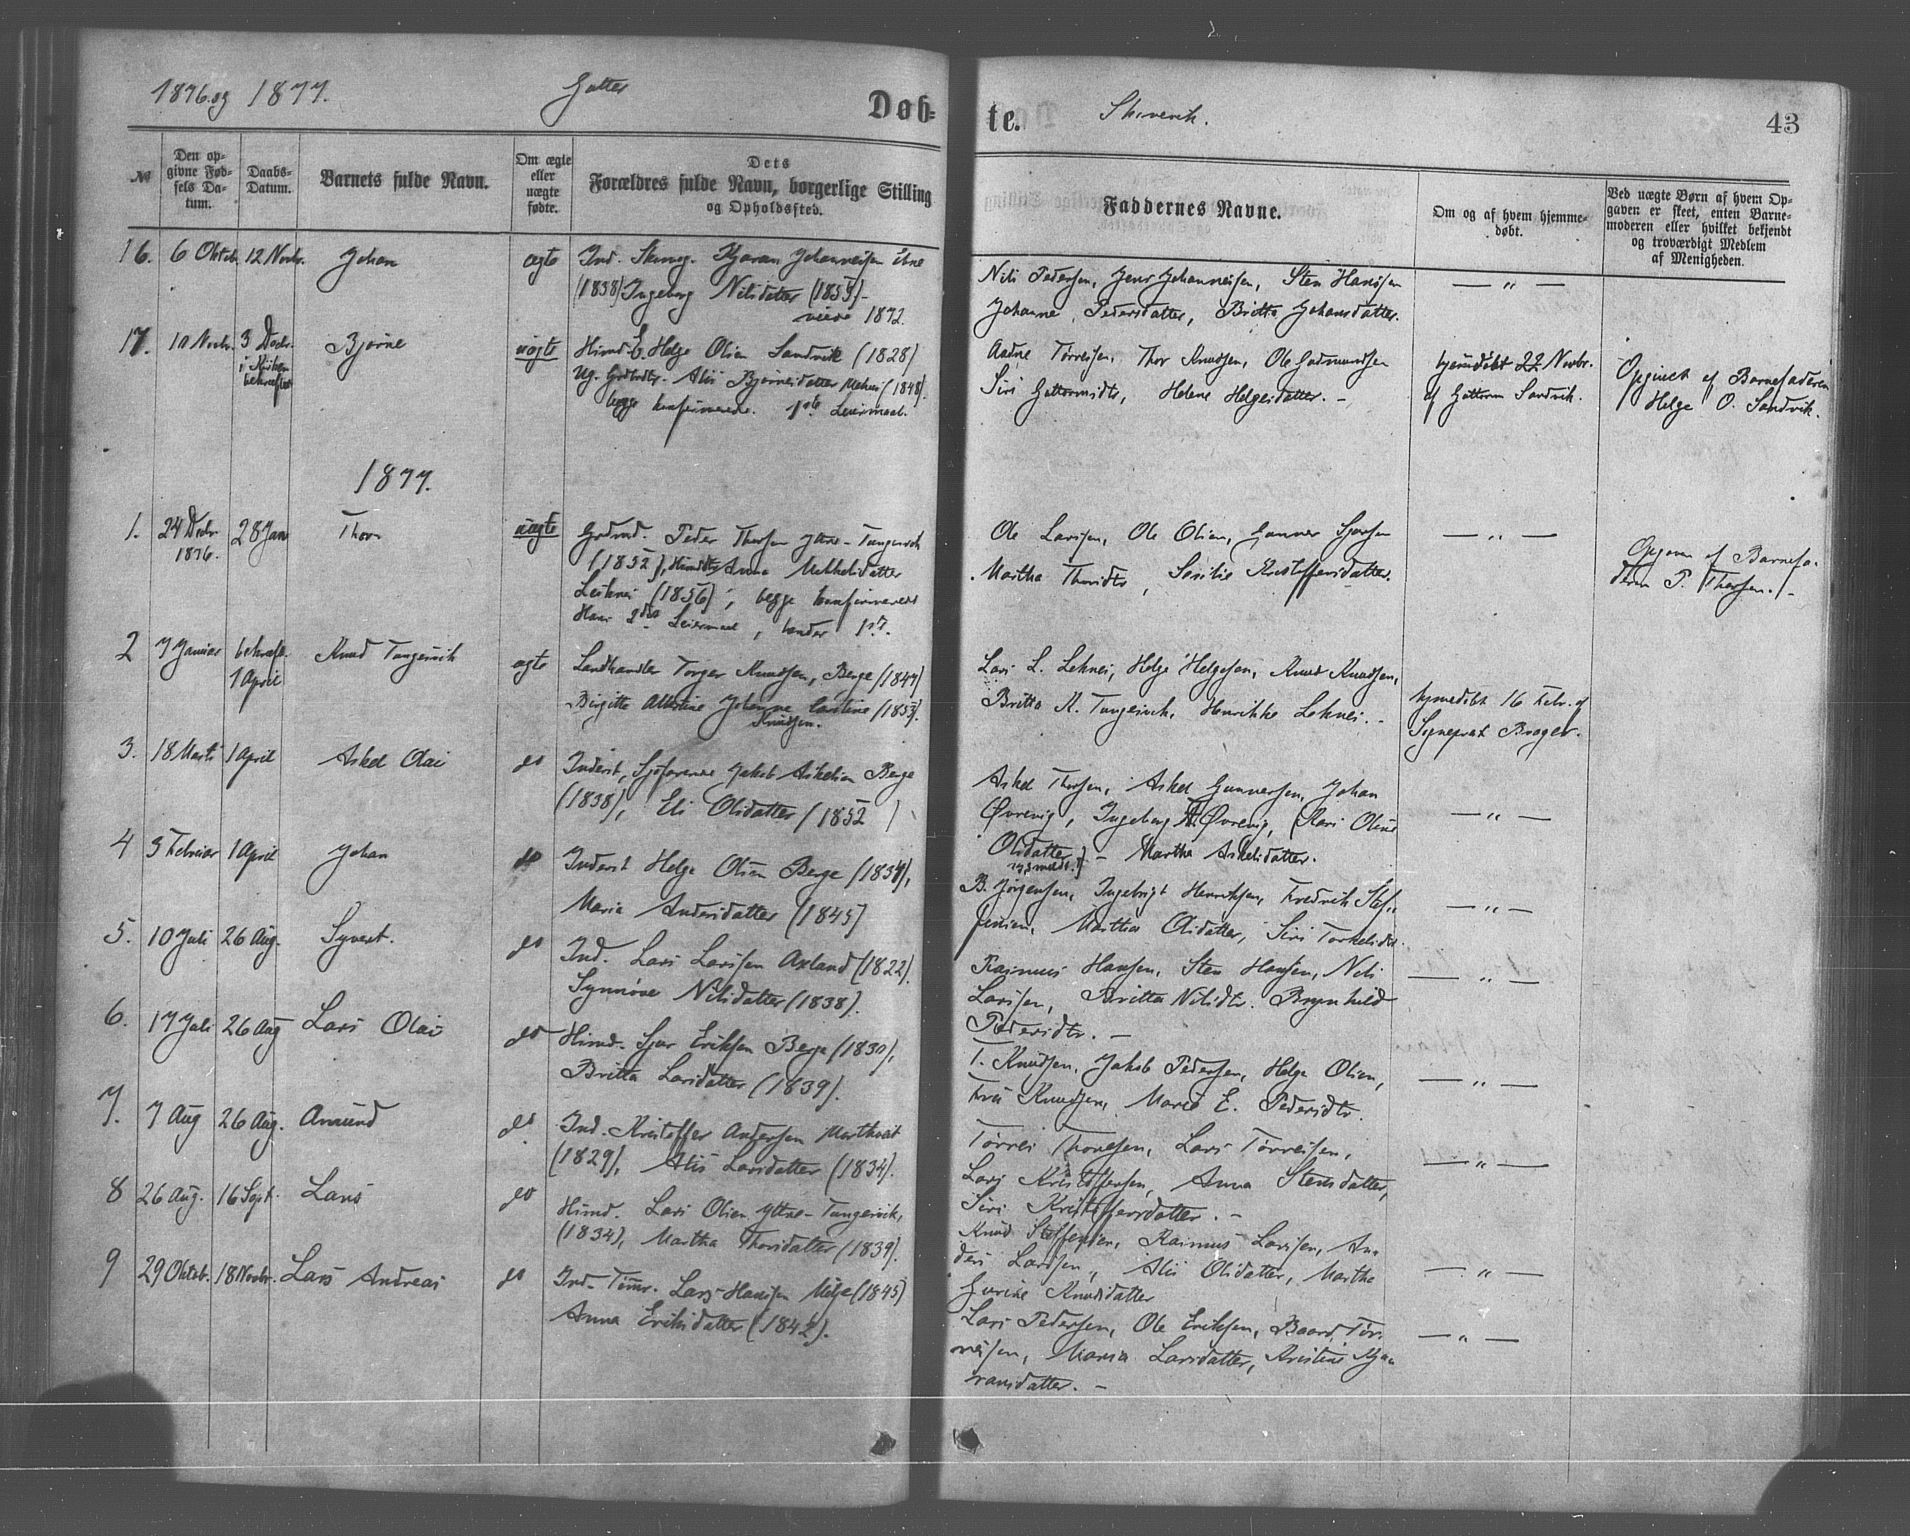 1876 og 1877.
Gutter
Døb-
№
Den op-
givne Fød-
sels Da-
tum.
Daabs-
Datum.
Barnets fulde Navn.
Om ægte
eller
uægte
fødte.
Dets
Forældres fulde Navn, borgerlige Stilling
og Opholdssted.
16. 6 Oktob. 12 Novbr. Johan ægte Ind. Johannesen
(1838) Ingeborg Nilsdatter (1855)-
viede 1872.
17. 10 Novbr. 3 Decbr. Bjørne uægte Huusmd. E. Helge Olsen Sandvik (1828)
i Kirken
bekræftet
Ug. Grdbrdtr. Alis Bjørnesdatter (1848).
begge konfirmerede. 1ste Leiermaal.
1877.
1. 24 Decbr 28 Jan Thor uægte Grdmd. Peder Thorsen Ytre-Tungesvik
1876.
(1852), Anna Mikkelsdatter
Leknes (1856), begge konfirmerede
Hans 2det Leiermaal, hendes 1ste.
2 7 Januar bekræft. Knud Tungesvik ægte Landhandler Torger Knudsen, Berge (1847)
1 April
Birgitte Johanne Caroline (1853).
Knudsen.
3. 18 Marts 1 April Askel Olai do Inderst, Sjøfarende Jakob Askelsen Berge
(1838), Eli Olsdatter (1852)
4 5 Februar 1 April Johan do Inderst Helge Olsen Berge (1834),
Maria Andersdatter (1845)
5. 10 Juli 26 Aug. Syvert. do Ind. Lars Larsen Axland (1822).
Synnøve Nilsdatter (1838).
6. 17 Juli 26 Aug Lars Olai do Huusmd. Sjur Eriksen Berge (1830),
Britta Larsdatter (1839).
7. 7 Aug 26 Aug. Amund do. Ind. Kristoffer Andersen Marthveit
(1829), Alis Larsdatter (1834).
8 26 Aug. 16 Sept. Lars do Huusmd. Lars Olsen Ytre-Tungesvik,
(1834), Martha Thorsdatter (1839).
9 29 Oktob. 18 Novbr. Lars Andreas do Ind. Tømr. Lars Hansen Milje (1845)
Anna Eriksdatter (1842).
te.
Skånevik.
43
Faddernes Navne.
Om og af hvem hjemme-
døbt.
Ved uægte Børn af hvem Op-
gaven er skeet, enten Barne-
moderen eller hvilket bekjendt
og troværdigt Medlem
af Menigheden.
Nils Pedersen, Jens Johannesen, Sten Hansen — „ —
Johanne Pedersdatter, Britta Johansdatter.
Aadne Tørresen, Thor Knudsen, Ole Gudmundsen
Siri Guttormsdtr, Helene Helgesdatter. -
hjemmedøbt 22 Novbr.
af Guttorm Sandvik.
Opgivet af Barnefaderen
Helge O. Sandvik.
Ole Larsen, Ole Olsen, Gunnar Sjursen — „ —
Martha Thorsdtr, Sesilie Kristoffersdatter.
Opgaven af Barnefa-
deren P. Thorsen. /-
Lars L. Leknes, Helge Helgesen, Knud Knudsen,
Britta K. Tungesvik, Henrikke Leknes. -
hjemmedøbt 16 Febr. af
Sogneprest Brager.
Askel Thorsen, Askel Gunnarsen, Johan
Øvrevig, Ingeborg Øvrevig, (Kari Oline — „ —
Olsdatter) - Martha Askelsdatter.
B. Jørgensen, Ingebrigt Henriksen, Fredrik Stef- — „ —
fensen, Martha Olsdatter, Siri Torkelsdtr.
Rasmus Hansen, Sten Hansen, Nils — „ —
Larsen, Britta Nilsdtr. Brynhild
Pedersdtr. -
T. Knudsen, Jakob Pedersen, Helge Olsen, — „ —
Fru Knudsen, Maria E. Pedersdtr.
Tørres Thoresen, Lars Tørresen, — „ —
Lars Kristoffersen, Anna Stensdatter,
Siri Kristoffersdatter. -
Knud Steffensen, Rasmus Larsen, An-
ders Larsen, Alis Olsdatter, Martha — „ —
Gurine Knudsdatter
Lars Pedersen, Ole Eriksen, Baard Tør- — „ —
resen, Maria Larsdatter, Kristine Kja-
ransdatter. -